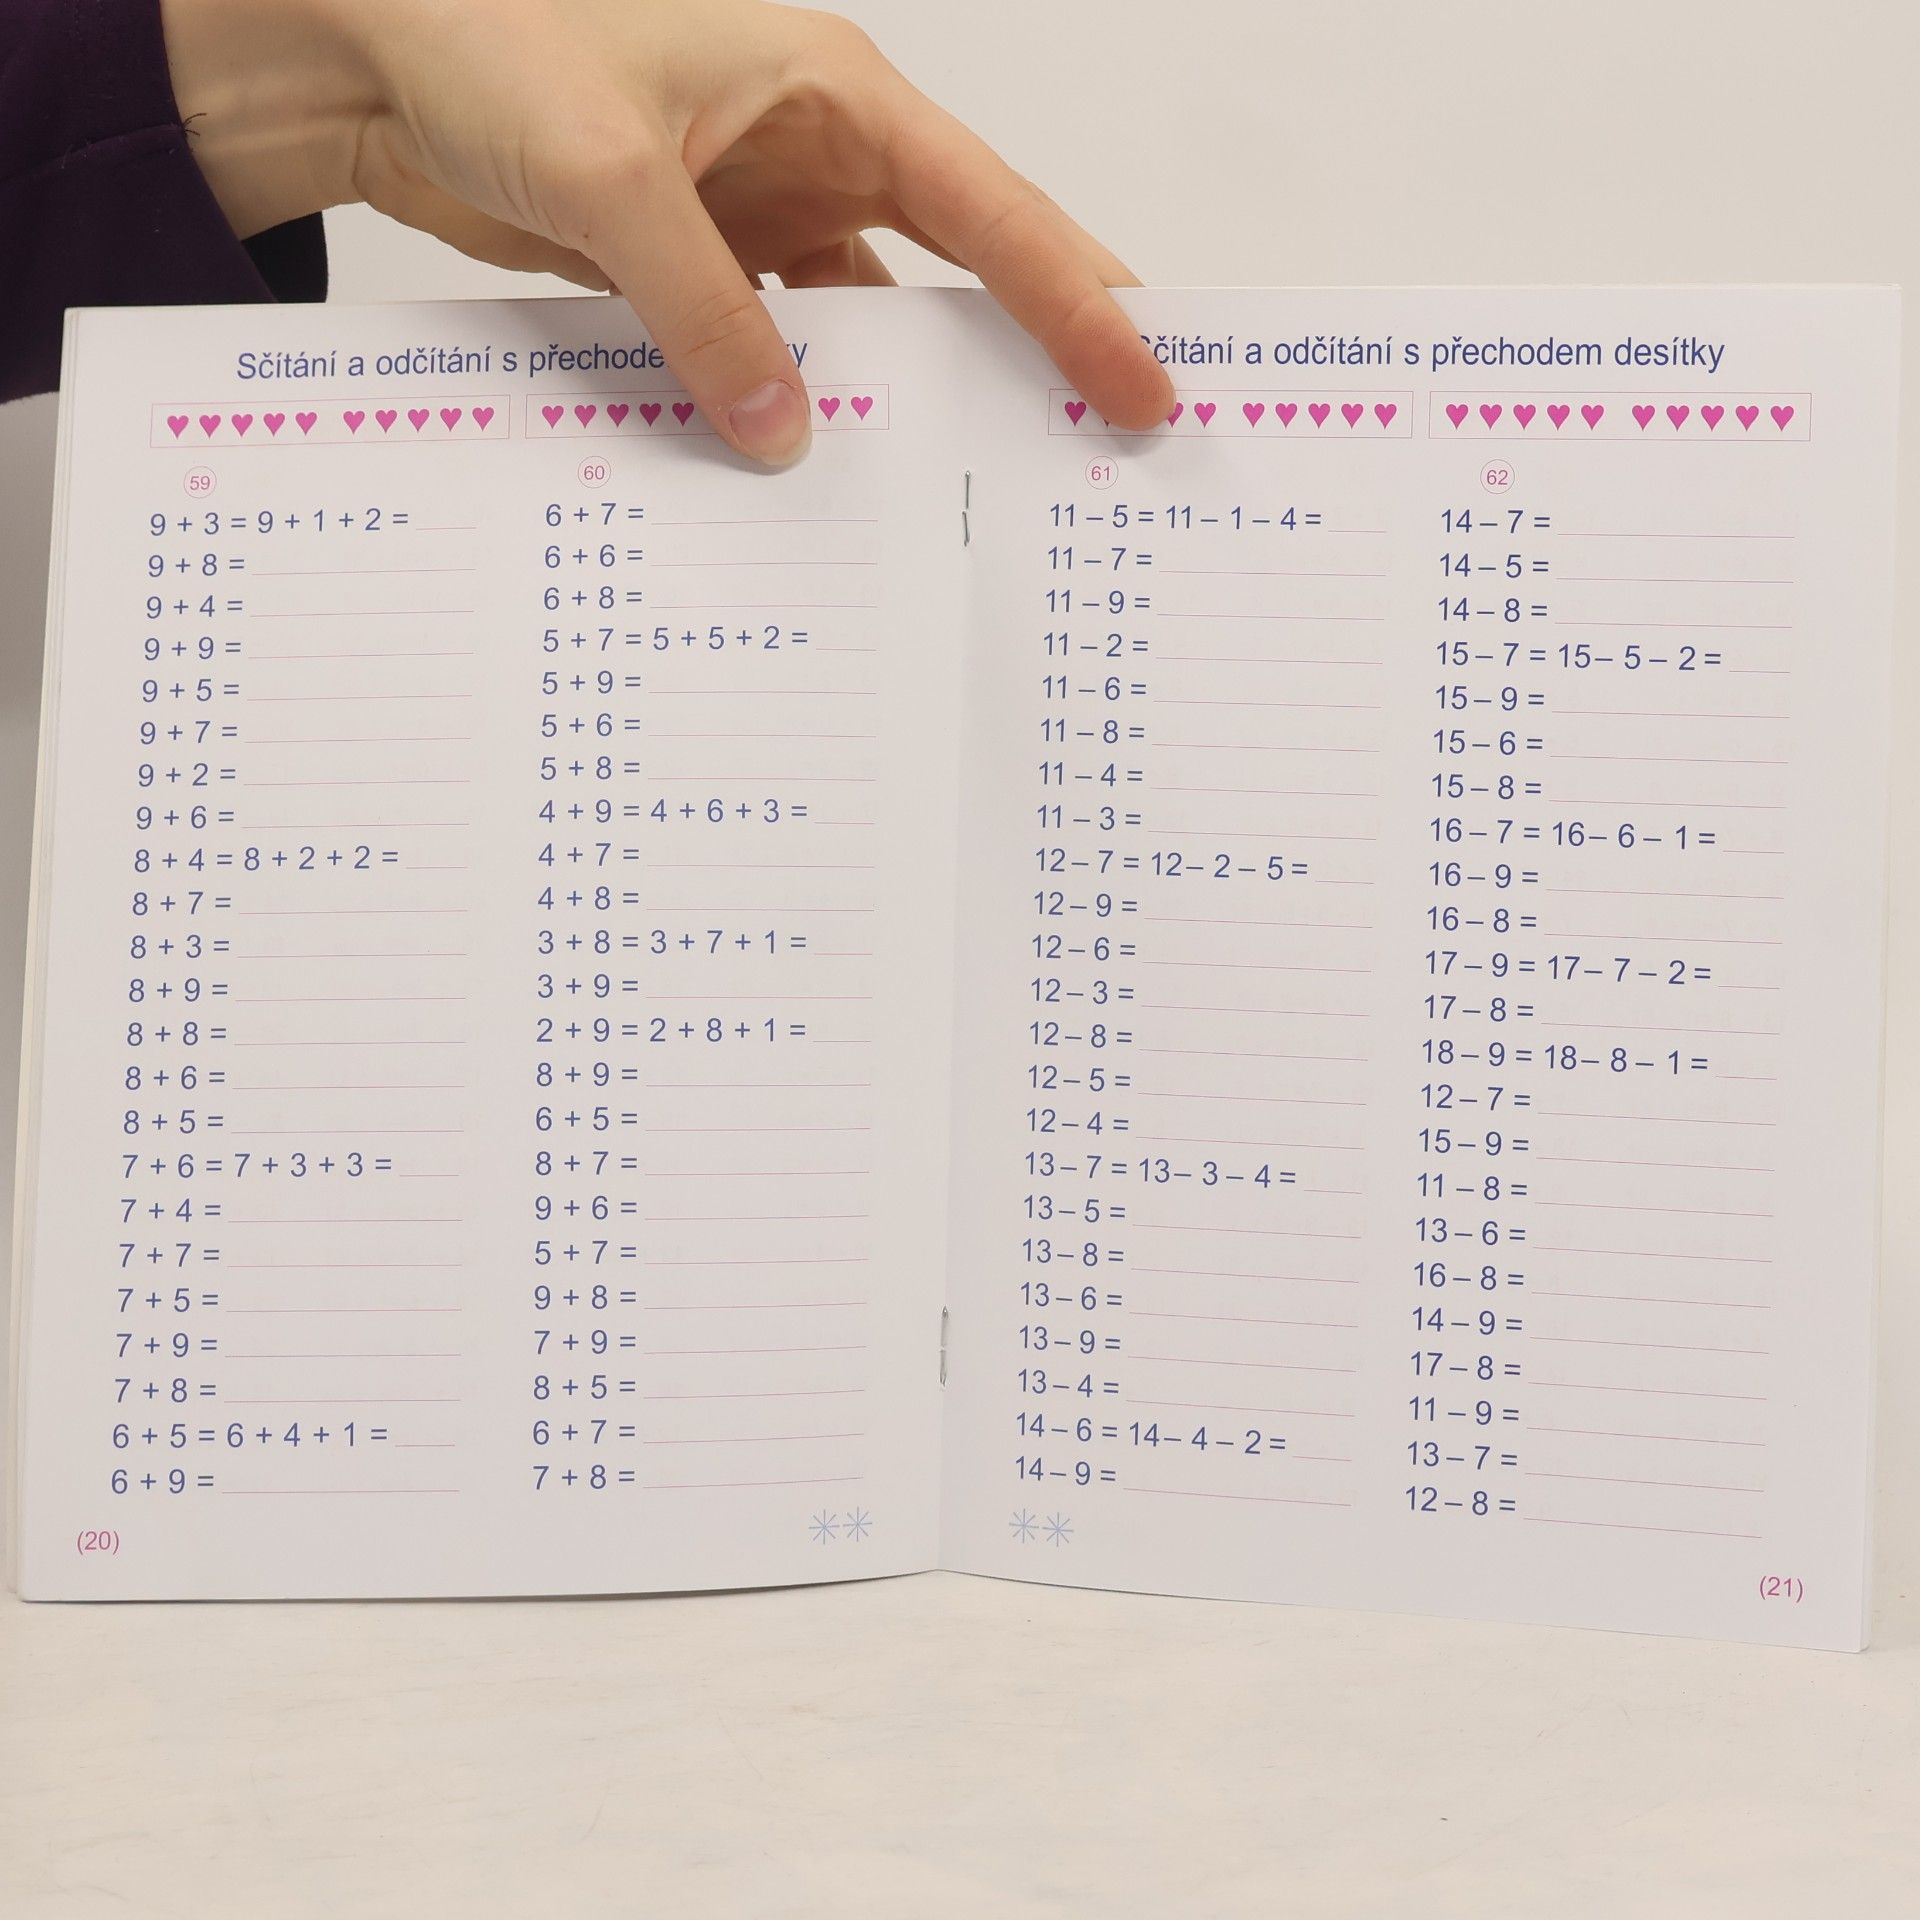 Sčítání a odčítání s
59
9 + 3 = 9 + 1 + 2 =
9 + 8 =
9 + 4 =
9 + 9 =
9 + 5 =
9 + 7 =
9 + 2 =
9 + 6 =
8 + 4 = 8 + 2 + 2 =
8 + 7 =
8 + 3 =
8 + 9 =
8 + 8 =
8 + 6 =
8 + 5 =
7 + 6 = 7 + 3 + 3 =
7 + 4 =
7 + 7 =
7 + 5 =
7 + 9 =
7 + 8 =
6 + 5 = 6 + 4 + 1 =
6 + 9 =
60
6 + 7 =
6 + 6 =
6 + 8 =
5 + 7 = 5 + 5 + 2 =
5 + 9 =
5 + 6 =
5 + 8 =
4 + 9 = 4 + 6 + 3 =
4 + 7 =
4 + 8 =
3 + 8 = 3 + 7 + 1 =
3 + 9 =
2 + 9 = 2 + 8 + 1 =
8 + 9 =
6 + 5 =
8 + 7 =
9 + 6 =
5 + 7 =
9 + 8 =
7 + 9 =
8 + 5 =
6 + 7 =
7 + 8 =
(20)
Sčítání a odčítání s přechodem desítky
61
11 – 5 = 11 – 1 – 4 =
11 – 7 =
11 – 9 =
11 – 2 =
11 – 6 =
11 – 8 =
11 – 4 =
11 – 3 =
12 – 7 = 12 – 2 – 5 =
12 – 9 =
12 – 6 =
12 – 3 =
12 – 8 =
12 – 5 =
12 – 4 =
13 – 7 = 13 – 3 – 4 =
13 – 5 =
13 – 8 =
13 – 6 =
13 – 9 =
13 – 4 =
14 – 6 = 14 – 4 – 2 =
14 – 9 =
62
14 – 7 =
14 – 5 =
14 – 8 =
15 – 7 = 15 – 5 – 2 =
15 – 9 =
15 – 6 =
15 – 8 =
16 – 7 = 16 – 6 – 1 =
16 – 9 =
16 – 8 =
17 – 9 = 17 – 7 – 2 =
17 – 8 =
18 – 9 = 18 – 8 – 1 =
12 – 7 =
15 – 9 =
11 – 8 =
13 – 6 =
16 – 8 =
14 – 9 =
17 – 8 =
11 – 9 =
13 – 7 =
12 – 8 =
(21)